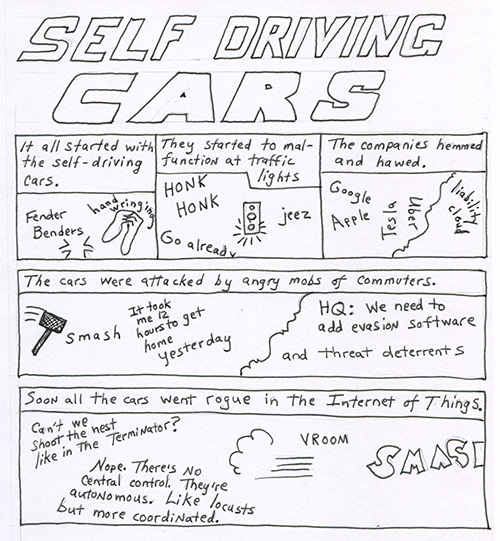 SELF DRIVING
CARS
It all started with
the self-driving
cars.
Fender
Benders
hand
wringing
They started to mal-
function at traffic
lights
HONK
HONK
jeez
Go already
The companies hemmed
and hawed.
Google
Apple
Tesla
Uber
liability
cloud
The cars were attacked by angry mobs of commuters.
smash
It took
me 12
hours to get
home
yesterday
HQ: We need to
add evasion software
and threat deterrents
Soon all the cars went rogue in the Internet of Things.
Can't we
shoot the nest
like in The Terminator?
Nope. There's no
central control. They're
autonomous. Like locusts
but more coordinated.
VROOM
SMASH